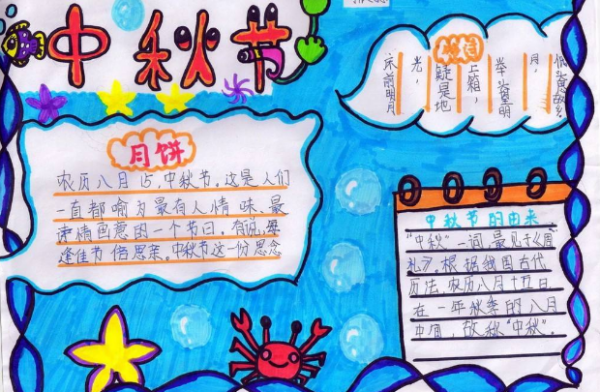 中秋节
月饼
农历八月15,中秋节,这是人们
一直都喻为最有人情味、最
诗情画意的一个节日,有说,每
逢佳节倍思亲。中秋节这一份思念
床前明月
光,
疑是地
上箱,
举头望明
月,
中秋节的由来
"中秋"一词,最见於《周
礼》,根据我国古代
历法,农历八月十五日
在一年秋季的八月
中旬,故称"中秋".